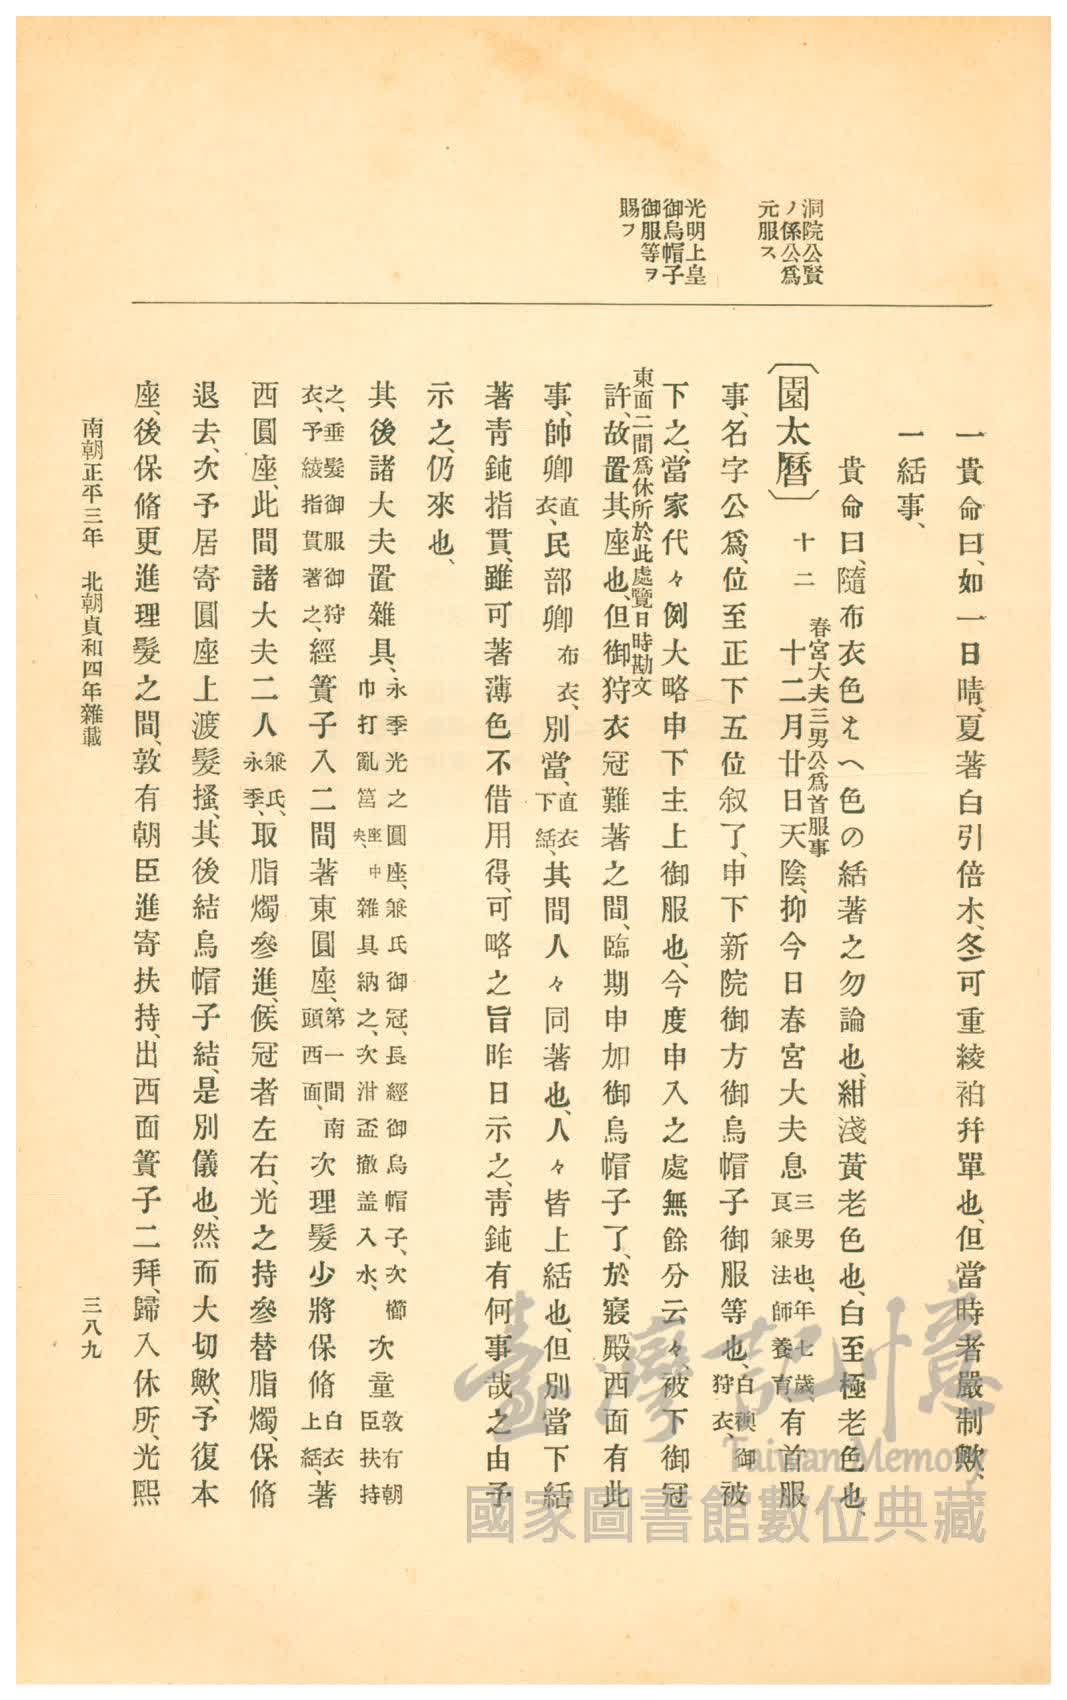 洞院公賢
ノ係公爲
元服ス
光明上皇
御烏帽子
御服等ヲ
賜フ
一貴命曰、如一日晴、夏著白引倍木、冬可重綾袙幷單也、但當時者嚴制歟、
一結事、
貴命曰、隨布衣色〻へ色の結著之勿論也、紺淺黃老色也、白至極老色也、
〔園太曆〕
十二
春宮大夫三男公爲首服事
十二月廿日天陰、抑今日春宮大夫息三男也、年七歲良兼法師養育有首服
事、名字公爲、位至正下五位叙了、申下新院御方御烏帽子御服等也、白襖御狩衣、被
下之、當家代々例大略申下主上御服也、今度申入之處無餘分云々、被下御冠
東面二間爲休所於此處覽日時勘文
許、故置其座也、但御狩衣冠難著之間、臨期申加御烏帽子了、於寢殿西面有此
事、帥卿直衣、民部卿布衣、別當、直衣下結、其間人々同著也、人々皆上結也、但別當下結
著靑鈍指貫、雖可著薄色不借用得、可略之旨昨日示之、靑鈍有何事哉之由予
示之、仍來也、
其後諸大夫置雜具、永季光之圓座、兼氏御冠、長經御烏帽子、次櫛巾打亂筥座中央、雜具納之、次泔盃撤盖入水、次童敦有朝臣扶持
之、垂髮御服御狩衣、予綾指貫著之、經簀子入二間著東圓座、第一間南頭、西面、次理髮少將保脩白衣上結、著
西圓座、此間諸大夫二人兼氏、永季、取脂燭參進、候冠者左右、光之持參替脂燭、保脩
退去、次予居寄圓座上渡髮搔、其後結烏帽子結、是別儀也、然而大切歟、予復本
座、後保脩更進理髮之間、敦有朝臣進寄扶持、出西面簀子二拜、歸入休所、光熙
南朝正平三年　北朝貞和四年雜載
三八九
臺灣記憶
Taiwan Memory
國家圖書館數位典藏